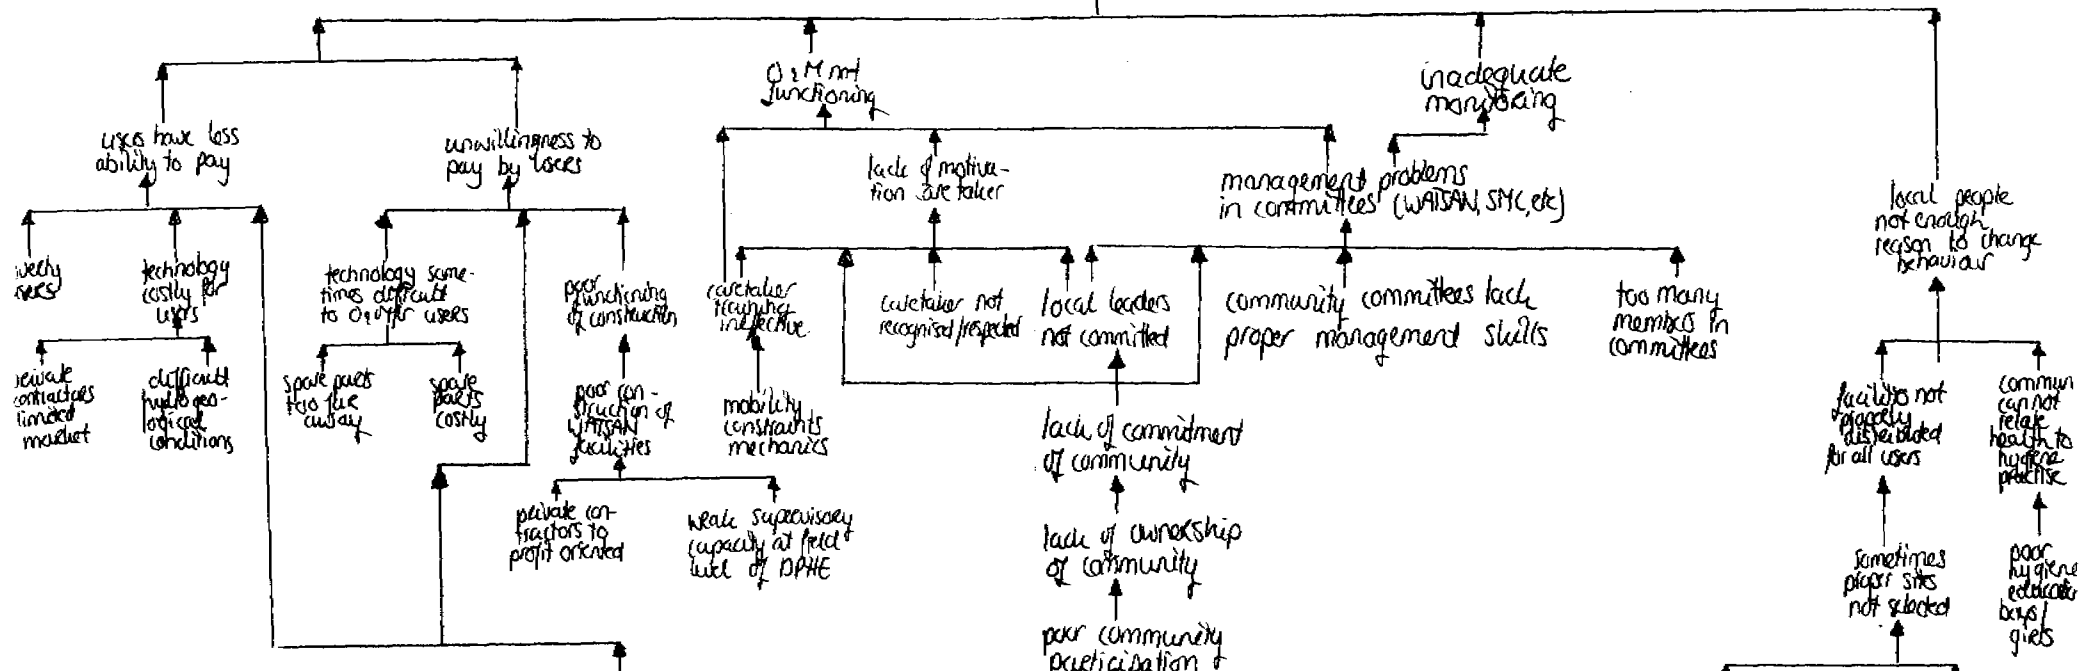 O & M not
functioning
inadequate
monitoring
users have less
ability to pay
unwillingness to
pay by users
lack of motiva-
tion caretaker
management problems
in committees (WATSAN, SMC, etc)
local people
not enough
reason to change
behaviour
technology
costly for
users
technology some-
times difficult
to O&M for users
poor
functioning
of construction
caretaker
training
ineffective
caretaker not
recognised/respected
local leaders
not committed
community committees lack
proper management skills
too many
members in
committees
private
contractors
limited
market
difficult
hydrogeo-
logical
conditions
spare parts
too far
away
spare
parts
costly
poor con-
struction of
WATSAN
facilities
mobility
constraints
mechanics
lack of commitment
of community
facilities not
properly
distributed
for all users
commun
can not
relate
health to
hygiene
practise
private con-
tractors to
profit oriented
weak supervisory
capacity at field
level of DPHE
lack of ownership
of community
sometimes
proper sites
not selected
poor
hygiene
education
boys/
girls
poor community
participation